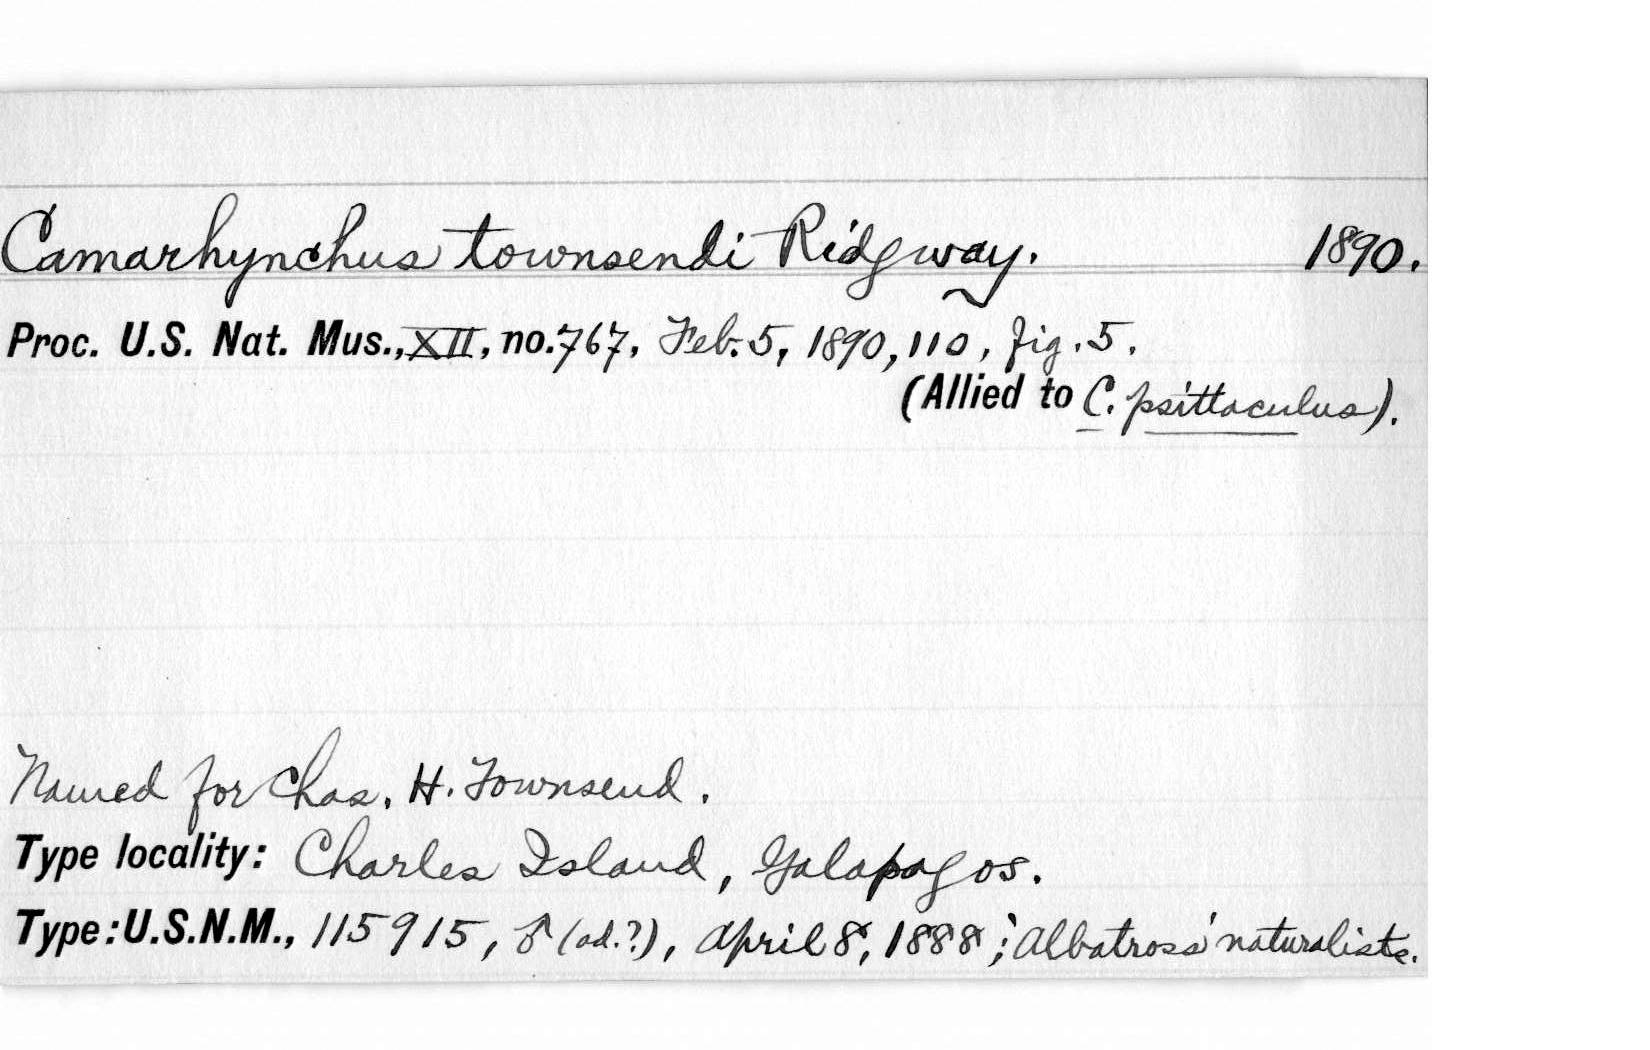 Camarhynchus townsendi Ridgway. 1890.
Proc. U.S. Nat. Mus., XII, no. 767, Feb. 5, 1890, 110, fig. 5.
(Allied to C. psittaculus).
Named for Chas. H. Townsend.
Type locality: Charles Island, Galapagos.
Type: U.S.N.M., 115915, ♂ (ad.?), April 8, 1888; 'Albatross' naturalists.